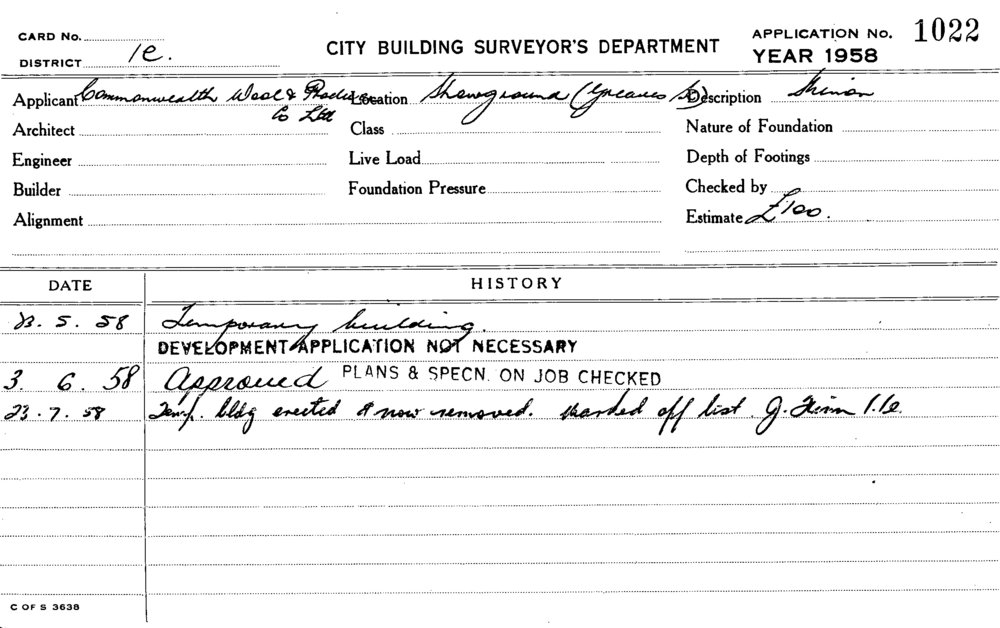 CARD No.
DISTRICT 1e.
CITY BUILDING SURVEYOR'S DEPARTMENT
APPLICATION No. 1022
YEAR 1958
Applicant Commonwealth Wool & Produce Co Ltd Location Showground (Greaves St) Description
Architect Class Nature of Foundation
Engineer Live Load Depth of Footings
Builder Foundation Pressure Checked by
Alignment Estimate £100.
DATE HISTORY
23. 5. 58 Temporary building.
DEVELOPMENT APPLICATION NOT NECESSARY
3. 6. 58 Approved PLANS & SPECN. ON JOB CHECKED
23. 7. 58 Temp. bldg erected & now removed. off list J.
C OF S 3638